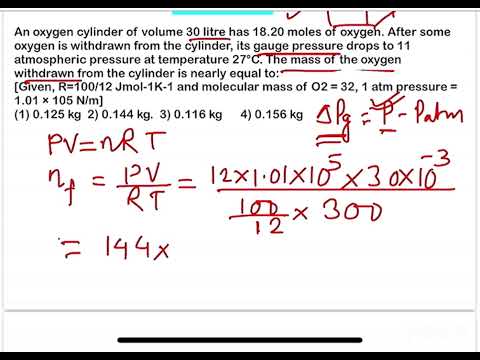 An oxygen cylinder of volume 30 litre has 18.20 moles of oxygen. After some
oxygen is withdrawn from the cylinder, its gauge pressure drops to 11
atmospheric pressure at temperature 27°C. The mass of the oxygen
withdrawn from the cylinder is nearly equal to:
[Given, R=100/12 Jmol-1K-1 and molecular mass of O2 = 32, 1 atm pressure =
1.01 × 105 N/m]
(1) 0.125 kg 2) 0.144 kg. 3) 0.116 kg 4) 0.156 kg
ΔPg = P - Patm
PV = nRT
nf = PV/RT = 12×1.01×10^5 × 30×10^-3 / 100/12 × 300
= 144×